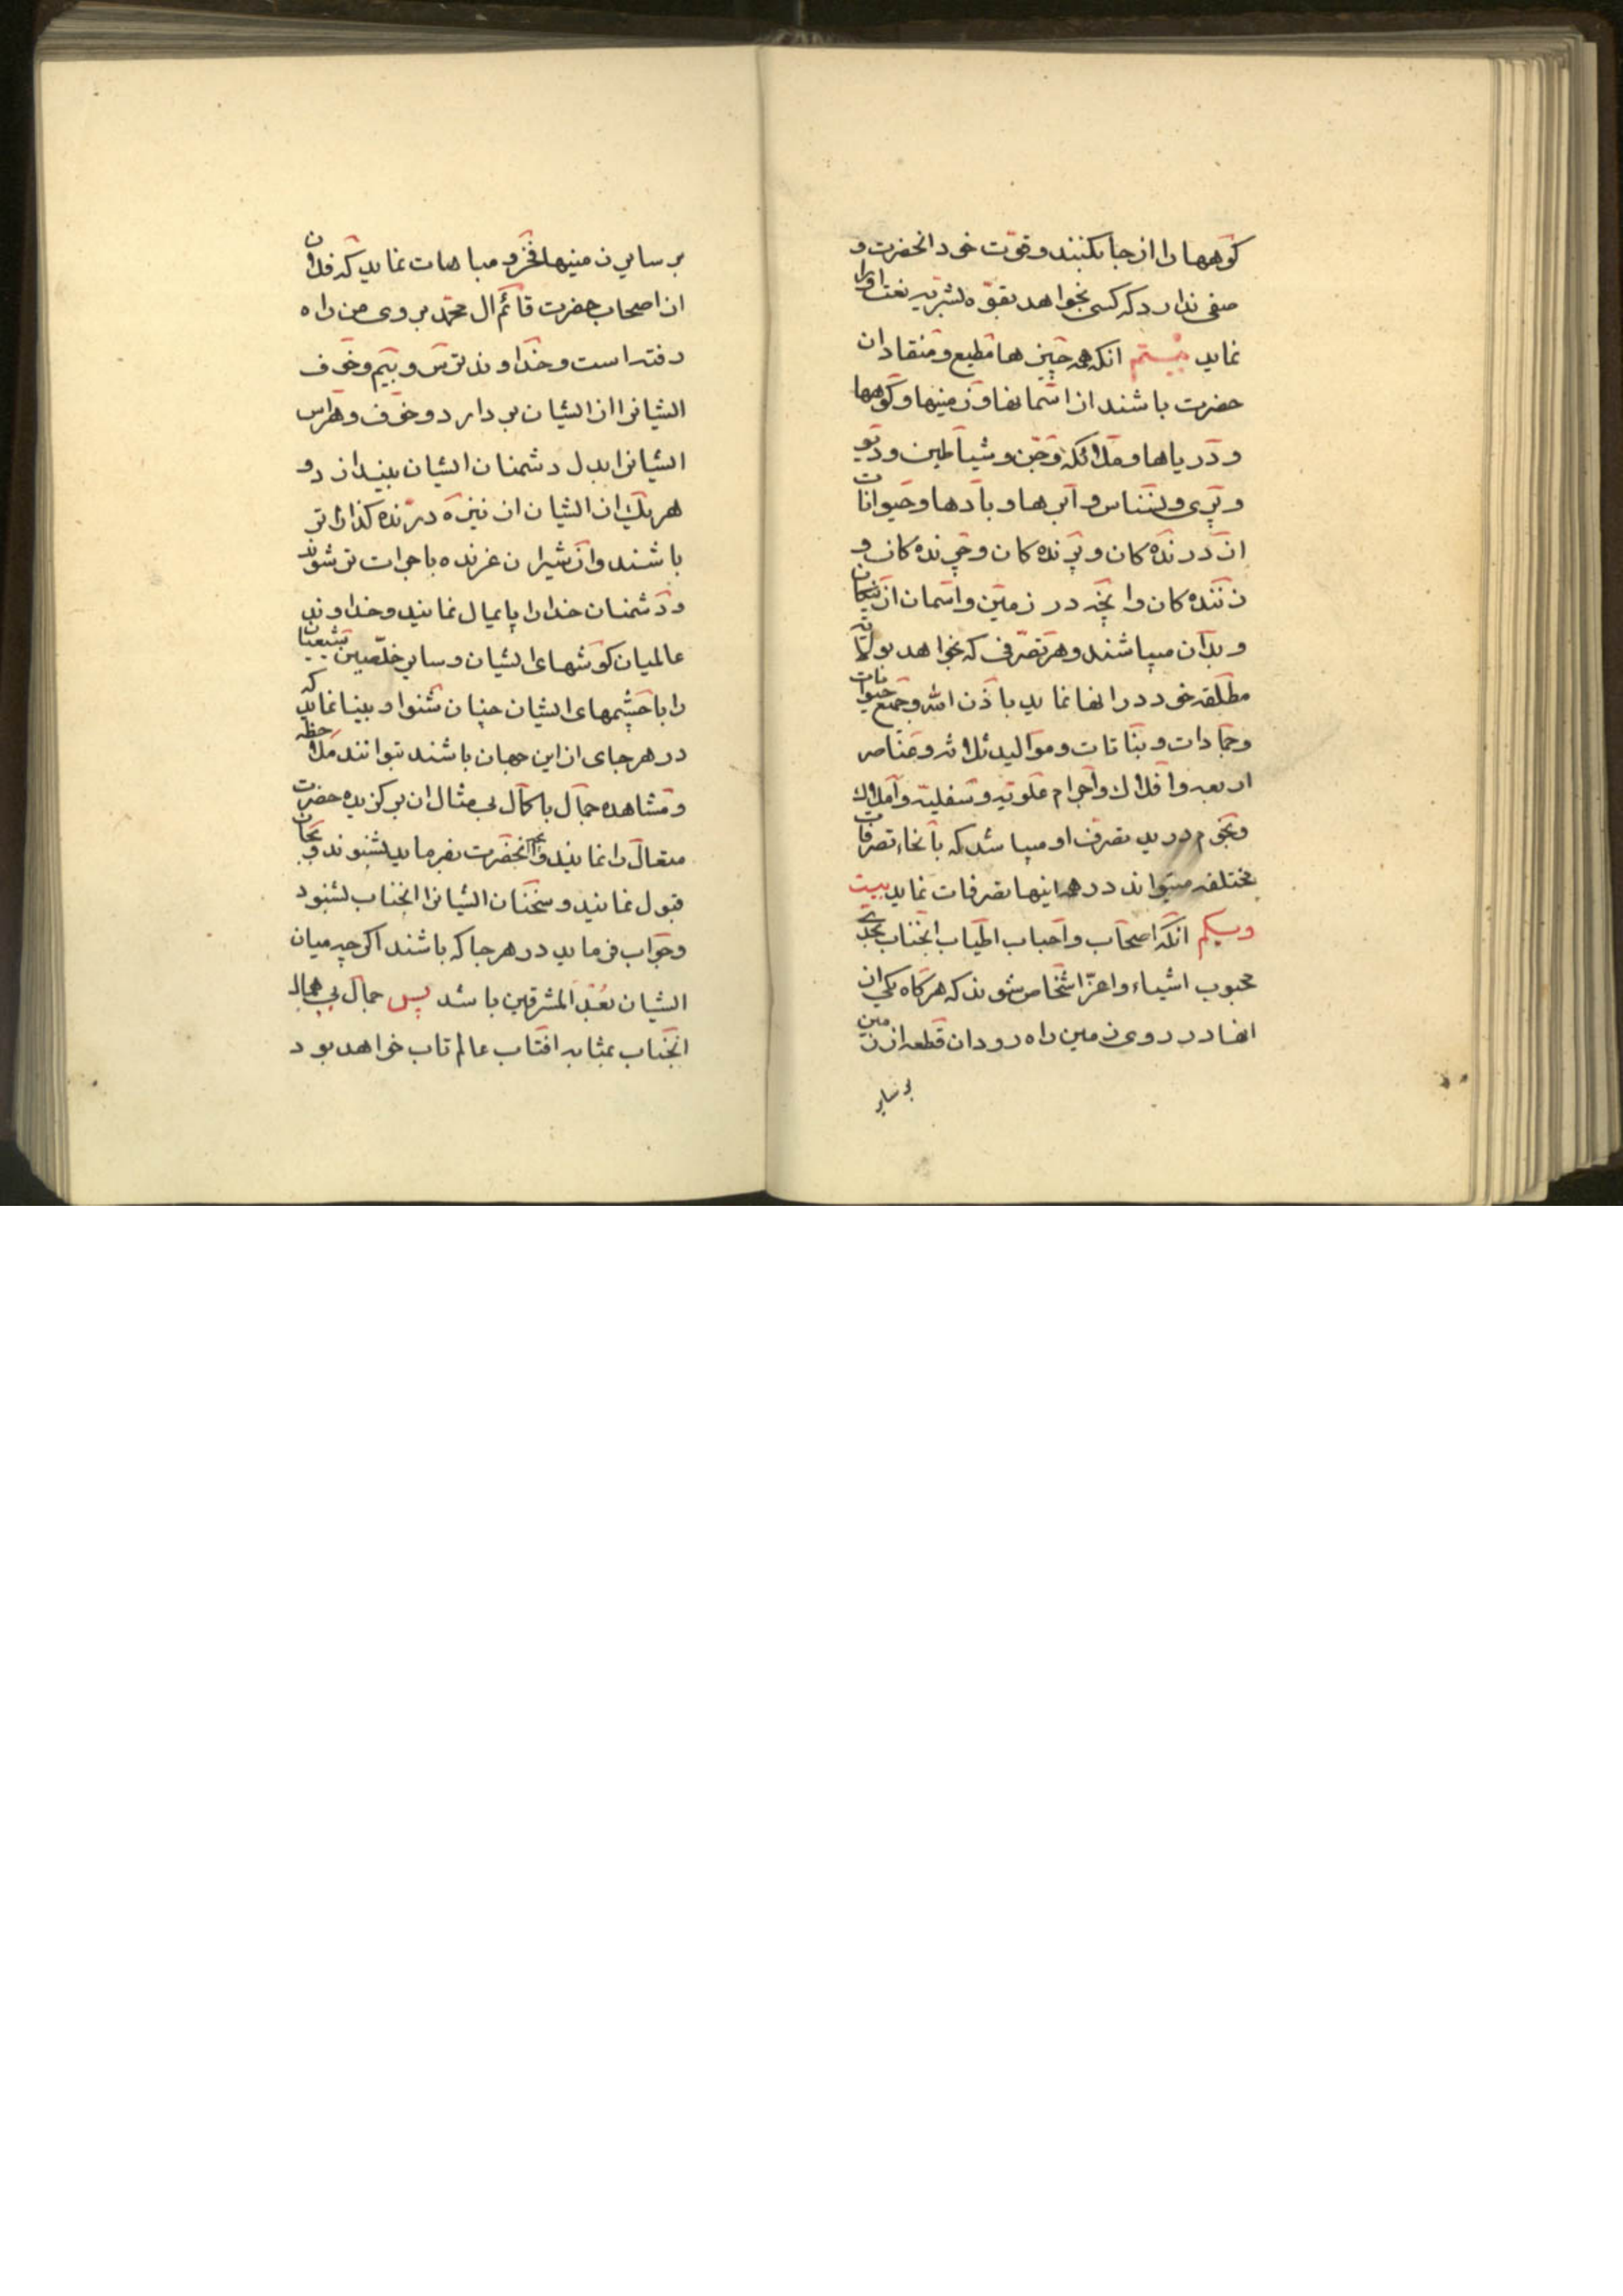 کوهها را از جا بکنند و قوّت خود انحضرت و
صفی ندارد که کسی بخواهد بقوّه بشریه نعت اورا
نماید بیستم انکه همه چیزها مطیع و منقاد ان
حضرت باشند از اسمانها و زمینها و کوهها
و دریاها و ملائکه و جن و شیاطین و دیو
و پری و نسناس و ابرها و بادها و حیوانات
از درنده کان و پرنده کان و چرنده کان و
زننده کان و انچه در زمین و اسمان از نیکان
و بدان میباشند و هر تصرفی که بخواهد بولایة
مطلقه خود در انها نماید باذن الله و جمیع حیوانات
و جمادات و نباتات و موالید ثلاثه و عناصر
اربعه و افلاک و اجرام علویه و سفلیه و املاک
و نجوم در ید تصرف او میباشد که بانحاء تصرفات
مختلفه میتواند در همه اینها تصرفات نماید بیست
و یکم انکه اصحاب و احباب اطیاب انجناب بحدی
محبوب اشیاء و اعزّ اشخاص شوند که هر کاه یکی از
انها در روی زمین راه رود ان قطعه از زمین
بر سایر
بر سایر زمینها فخر و مباهات نماید که فلان
از اصحاب حضرت قائم ال محمّد بر روی من راه
رفته است و خداوند ترس و بیم و خوف
ایشانرا از ایشان بردارد و خوف و هراس
ایشانرا بدل دشمنان ایشان بیندازد و
هر یک از ایشان از نیزه درنده کذاراتر
باشند و از شیران غرنده با جرات تر شوند
و دشمنان خدا را پایمال نمایند و خداوند
عالمیان کوشهای ایشان و سایر مخلصین شیعیان
را با چشمهای ایشان چنان شنوا و بینا نماید که
در هر جای از این جهان باشند بتوانند ملاحظه
و مشاهده جمال با کمال بی مثال ان بر کزیده حضرت
متعال را نمایند و انچه انحضرت بفرماید بشنوند و بجان
قبول نمایند و سخنان ایشانرا انجناب بشنود
و جواب فرماید در هر جا که باشند اکر چه میان
ایشان بُعْدَ المشرقین باشد پس جمال بی همال
انجناب بمثابه افتاب عالم تاب خواهد بود